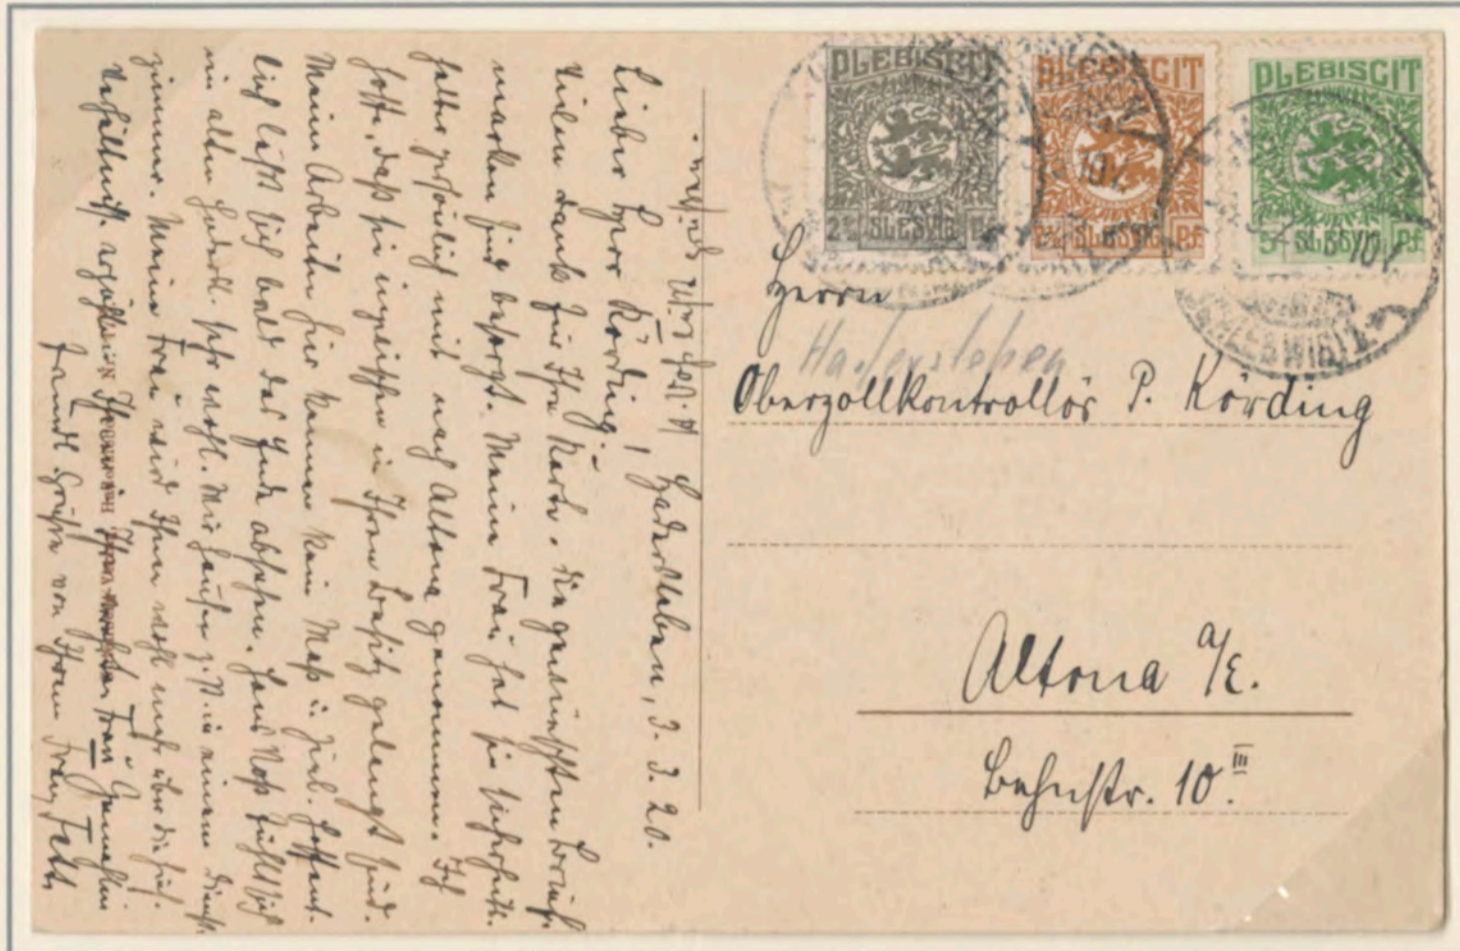 PLEBISCIT
SLESVIG
2½ Pf.
PLEBISCIT
SLESVIG
7½ Pf.
PLEBISCIT
SLESVIG
5 Pf.
Herrn
Hadersleben
Oberzollkontrollör P. Körding
Altona a/E.
Behnstr. 10 III
Hadersleben, 3. 3. 20.
Lieber Herr Körding!
Vielen Dank für Ihre Karte. Die gewünschten Brief-
marken sind besorgt. Meine Frau hat sie
selber persönlich mit nach Altona genommen. Ich
hoffe, daß sie inzwischen in Ihren Besitz gelangt sind.
Meine Arbeiten hier kennen kein Maß u. Ziel. Hoffent-
lich läßt sich bald das Ende absehen. Hans Noß fühlt sich
im alten Hadersl. sehr wohl. Wir hausen z. Zt. in einem Dienst-
zimmer. Meine Frau wird Ihnen wohl mehr über die hies.
Verhältnisse erzählen. Ihnen u. Ihrer Frau Gemahlin
freundl. Grüße von Ihrem